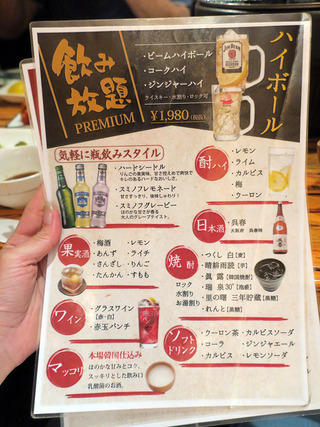 飲み放題
PREMIUM
ハイボール
・ビームハイボール
・コークハイ
・ジンジャーハイ
ライスキー・水割り・ロック可
¥1,980(税抜)
気軽に瓶飲みスタイル
・ハードシードル
りんごの果実味、甘さ控えめで爽快で
キレのあるハードなおいしさ。
・スミノフレモネード
甘さすっきり、後味しゅわり!
・スミノフグレービー
ほのかな甘さが香る
大人のグレープテイスト。
酎ハイ
・レモン
・ライム
・カルピス
・梅
・ウーロン
日本酒
・呉春
大阪府 呉春㈱
果実酒
・梅酒
・あんず
・さんざし
・たんかん
・レモン
・ライチ
・りんご
・すもも
焼酎
ロック
水割り
お湯割り
・つくし 白[麦]
・晴耕雨読[芋]
・眞露[韓国焼酎]
・瑞泉30°[泡盛]
・里の曙 三年貯蔵[黒糖]
・れんと[黒糖]
ワイン
・グラスワイン
[赤・白]
・赤玉パンチ
ソフトドリンク
・ウーロン茶
・コーラ
・カルピス
・カルピスソーダ
・ジンジャエール
・レモンソーダ
マッコリ
本場韓国仕込み
ほのかな甘みとコク、
スッキリとした飲み口
乳酸菌のお酒。